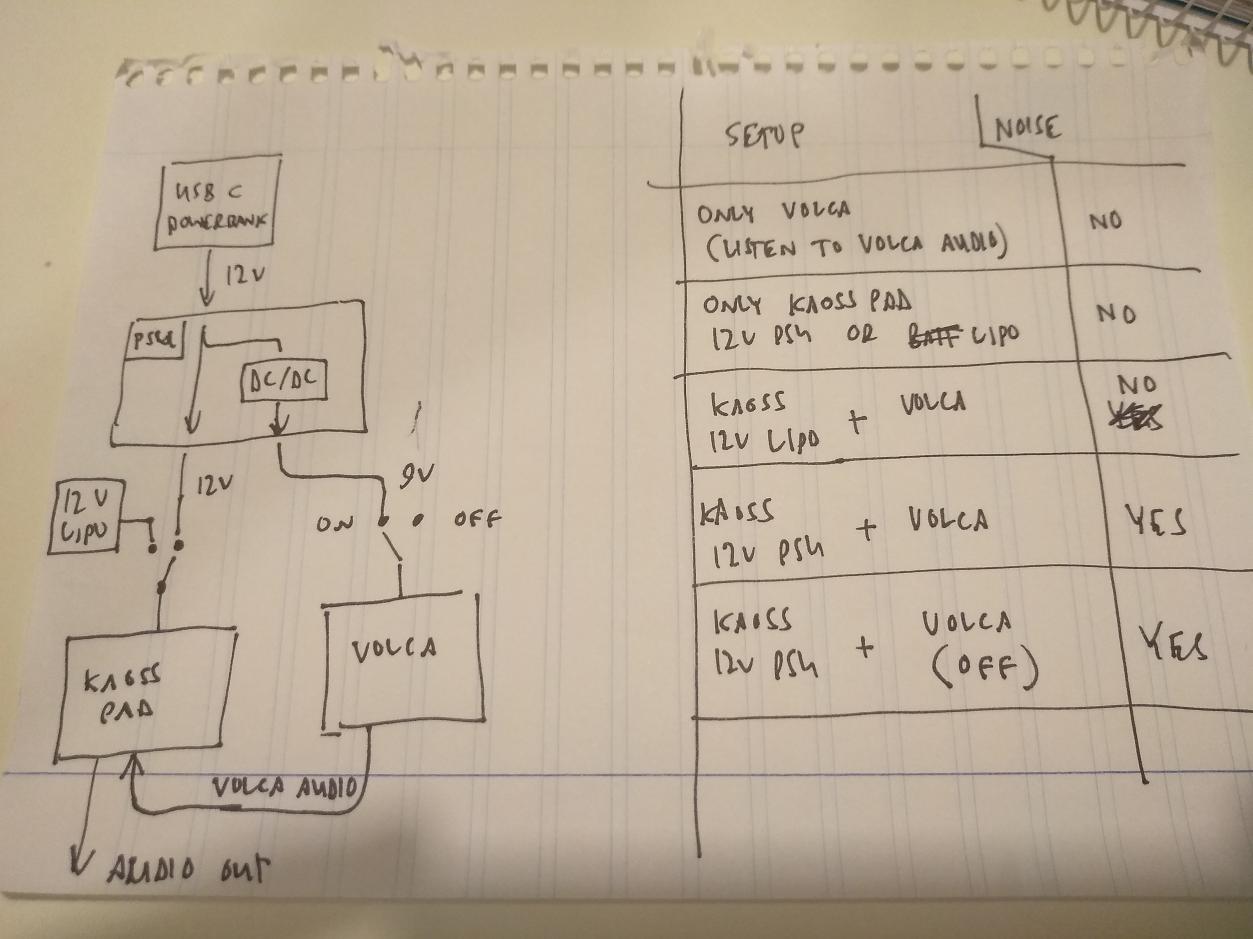 USB C
POWERBANK
12V
PSU
DC/DC
12V
9V
12V
LIPO
ON
OFF
KAOSS
PAD
VOLCA
VOLCA AUDIO
AUDIO OUT
SETUP
NOISE
ONLY VOLCA
(LISTEN TO VOLCA AUDIO)
NO
ONLY KAOSS PAD
12V PSU OR BATT LIPO
NO
KAOSS
12V LIPO + VOLCA
NO
YES
KAOSS
12V PSU + VOLCA
YES
KAOSS
12V PSU + VOLCA
(OFF)
YES